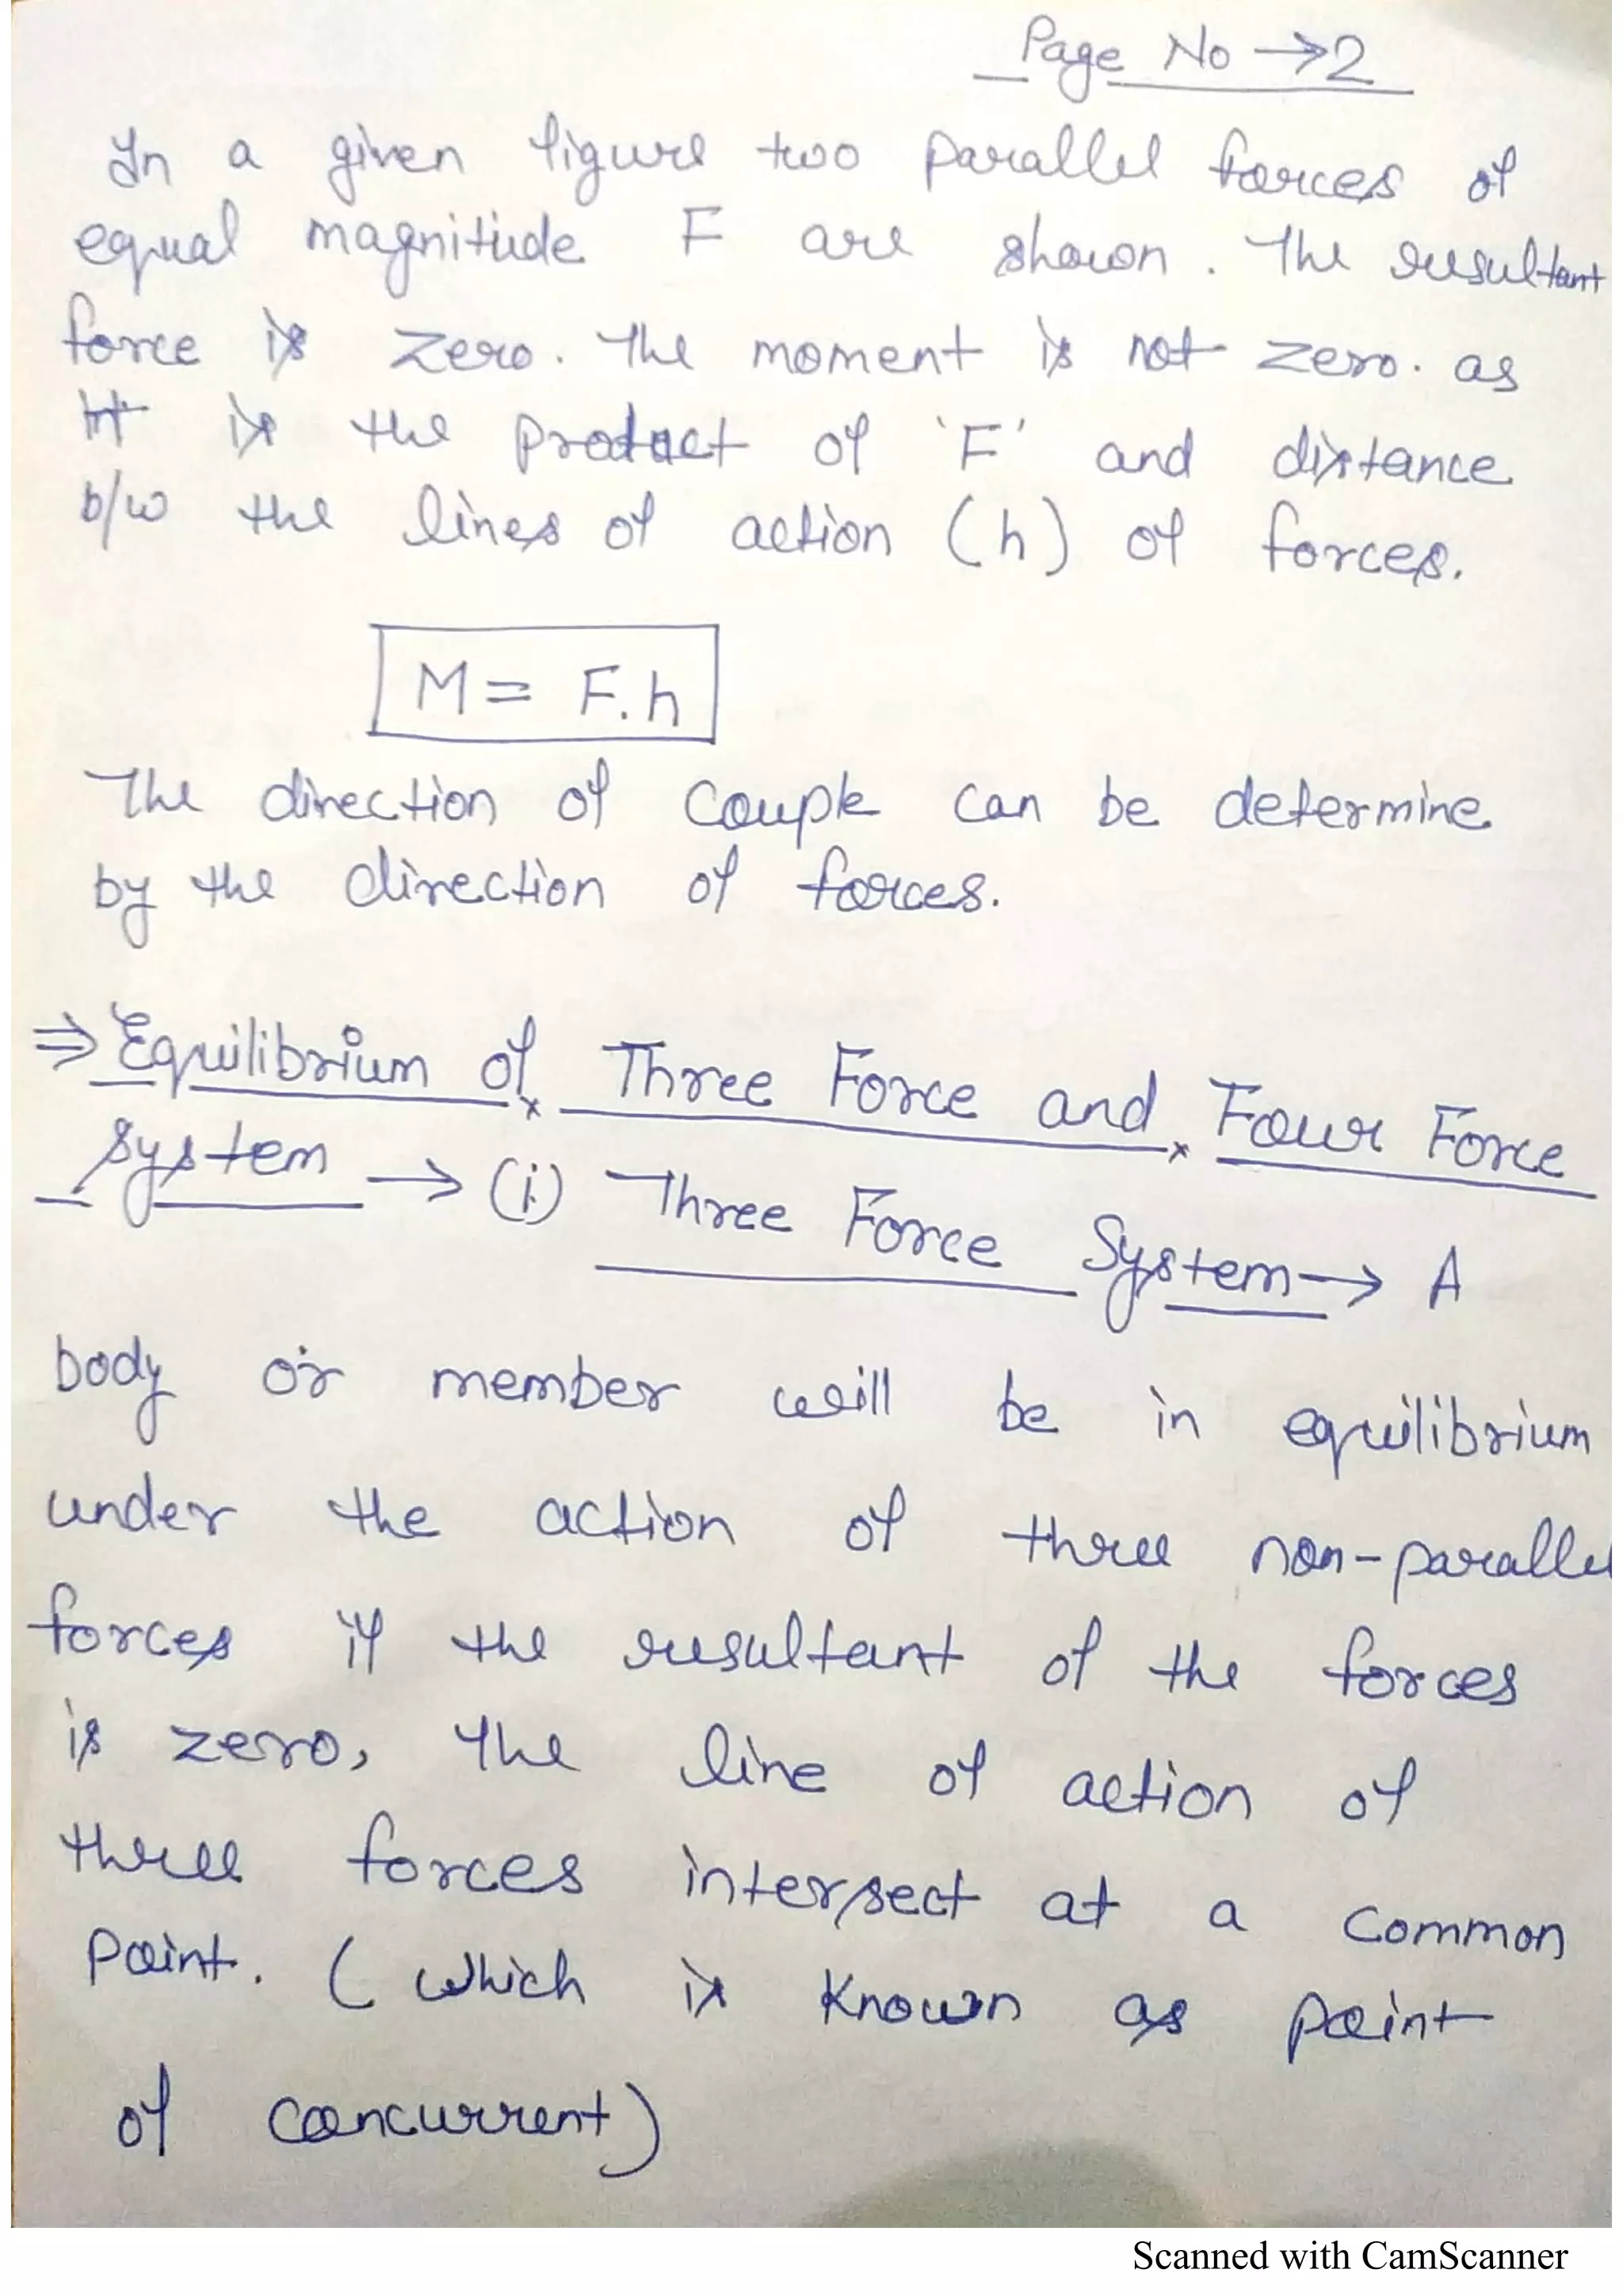 Page No →2
In a given figure two parallel forces of
equal magnitude F are shown. The resultant
force is zero. The moment is not zero. as
it is the product of 'F' and distance
b/w the lines of action (h) of forces.
M = F.h
The direction of couple can be determine
by the direction of forces.
⇒ Equilibrium of Three Force and Four Force
System → (i) Three Force System → A
body or member will be in equilibrium
under the action of three non-parallel
forces if the resultant of the forces
is zero, The line of action of
three forces intersect at a common
point. (which is known as point
of concurrent)
Scanned with CamScanner